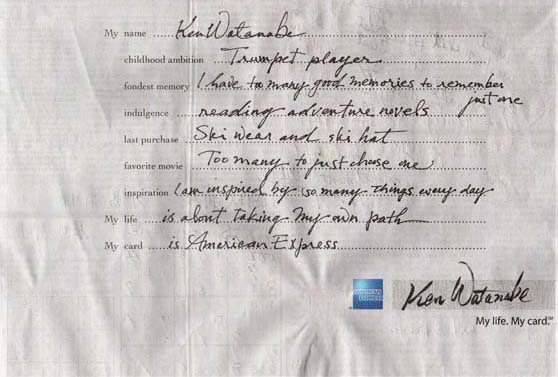 My name Ken Watanabe
childhood ambition Trumpet player
fondest memory I have too many good memories to remember
just one
indulgence reading adventure novels
last purchase Ski wear and ski hat
favorite movie Too many to just choose one;
inspiration I am inspired by so many things every day
My life is about taking my own path
My card is American Express
AMERICAN EXPRESS
Ken Watanabe
My life. My card.℠